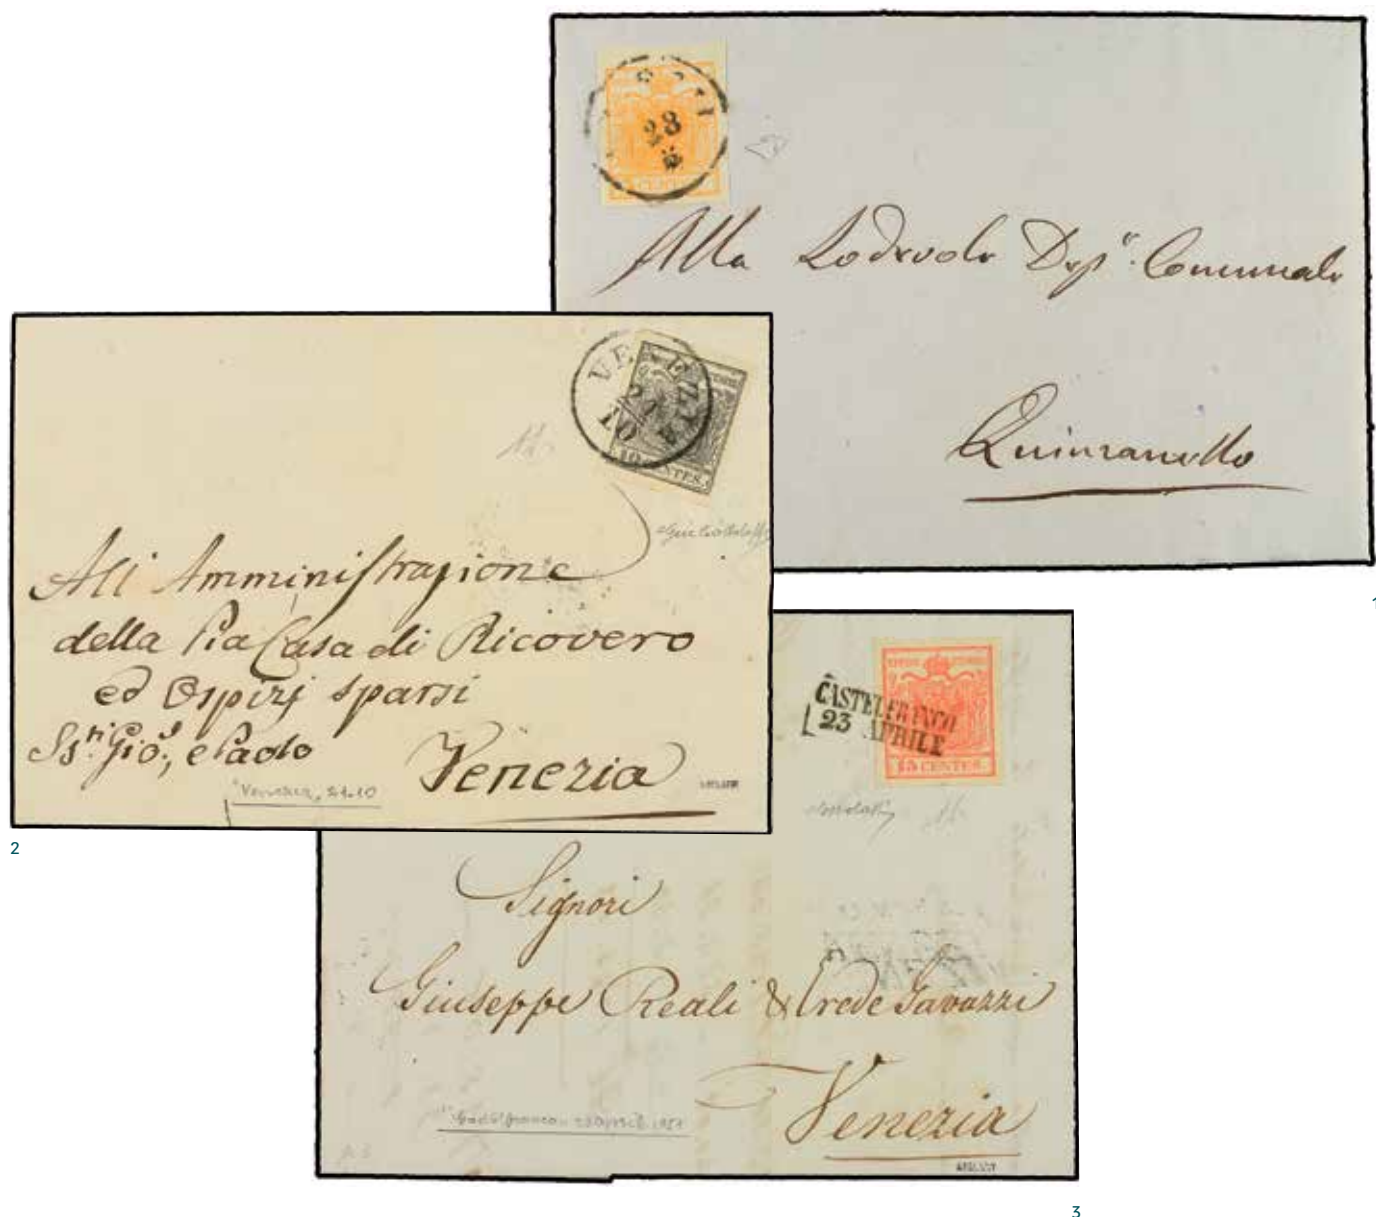 28
5
CENTES
Alla Lodevole Dep.e Comunale
Quinzanello
1
VENEZIA
21
10
10 CENTES.
All' Amministrazione
della Pia Casa di Ricovero
ed Ospizj sparsi
Ss.ti Gio:, e Paolo
Venezia
Venezia, 21.10
2
CASTELFRANCO
23 APRILE
15 CENTES.
Signori
Giuseppe Reali & Erede Gavazzi
Venezia
3